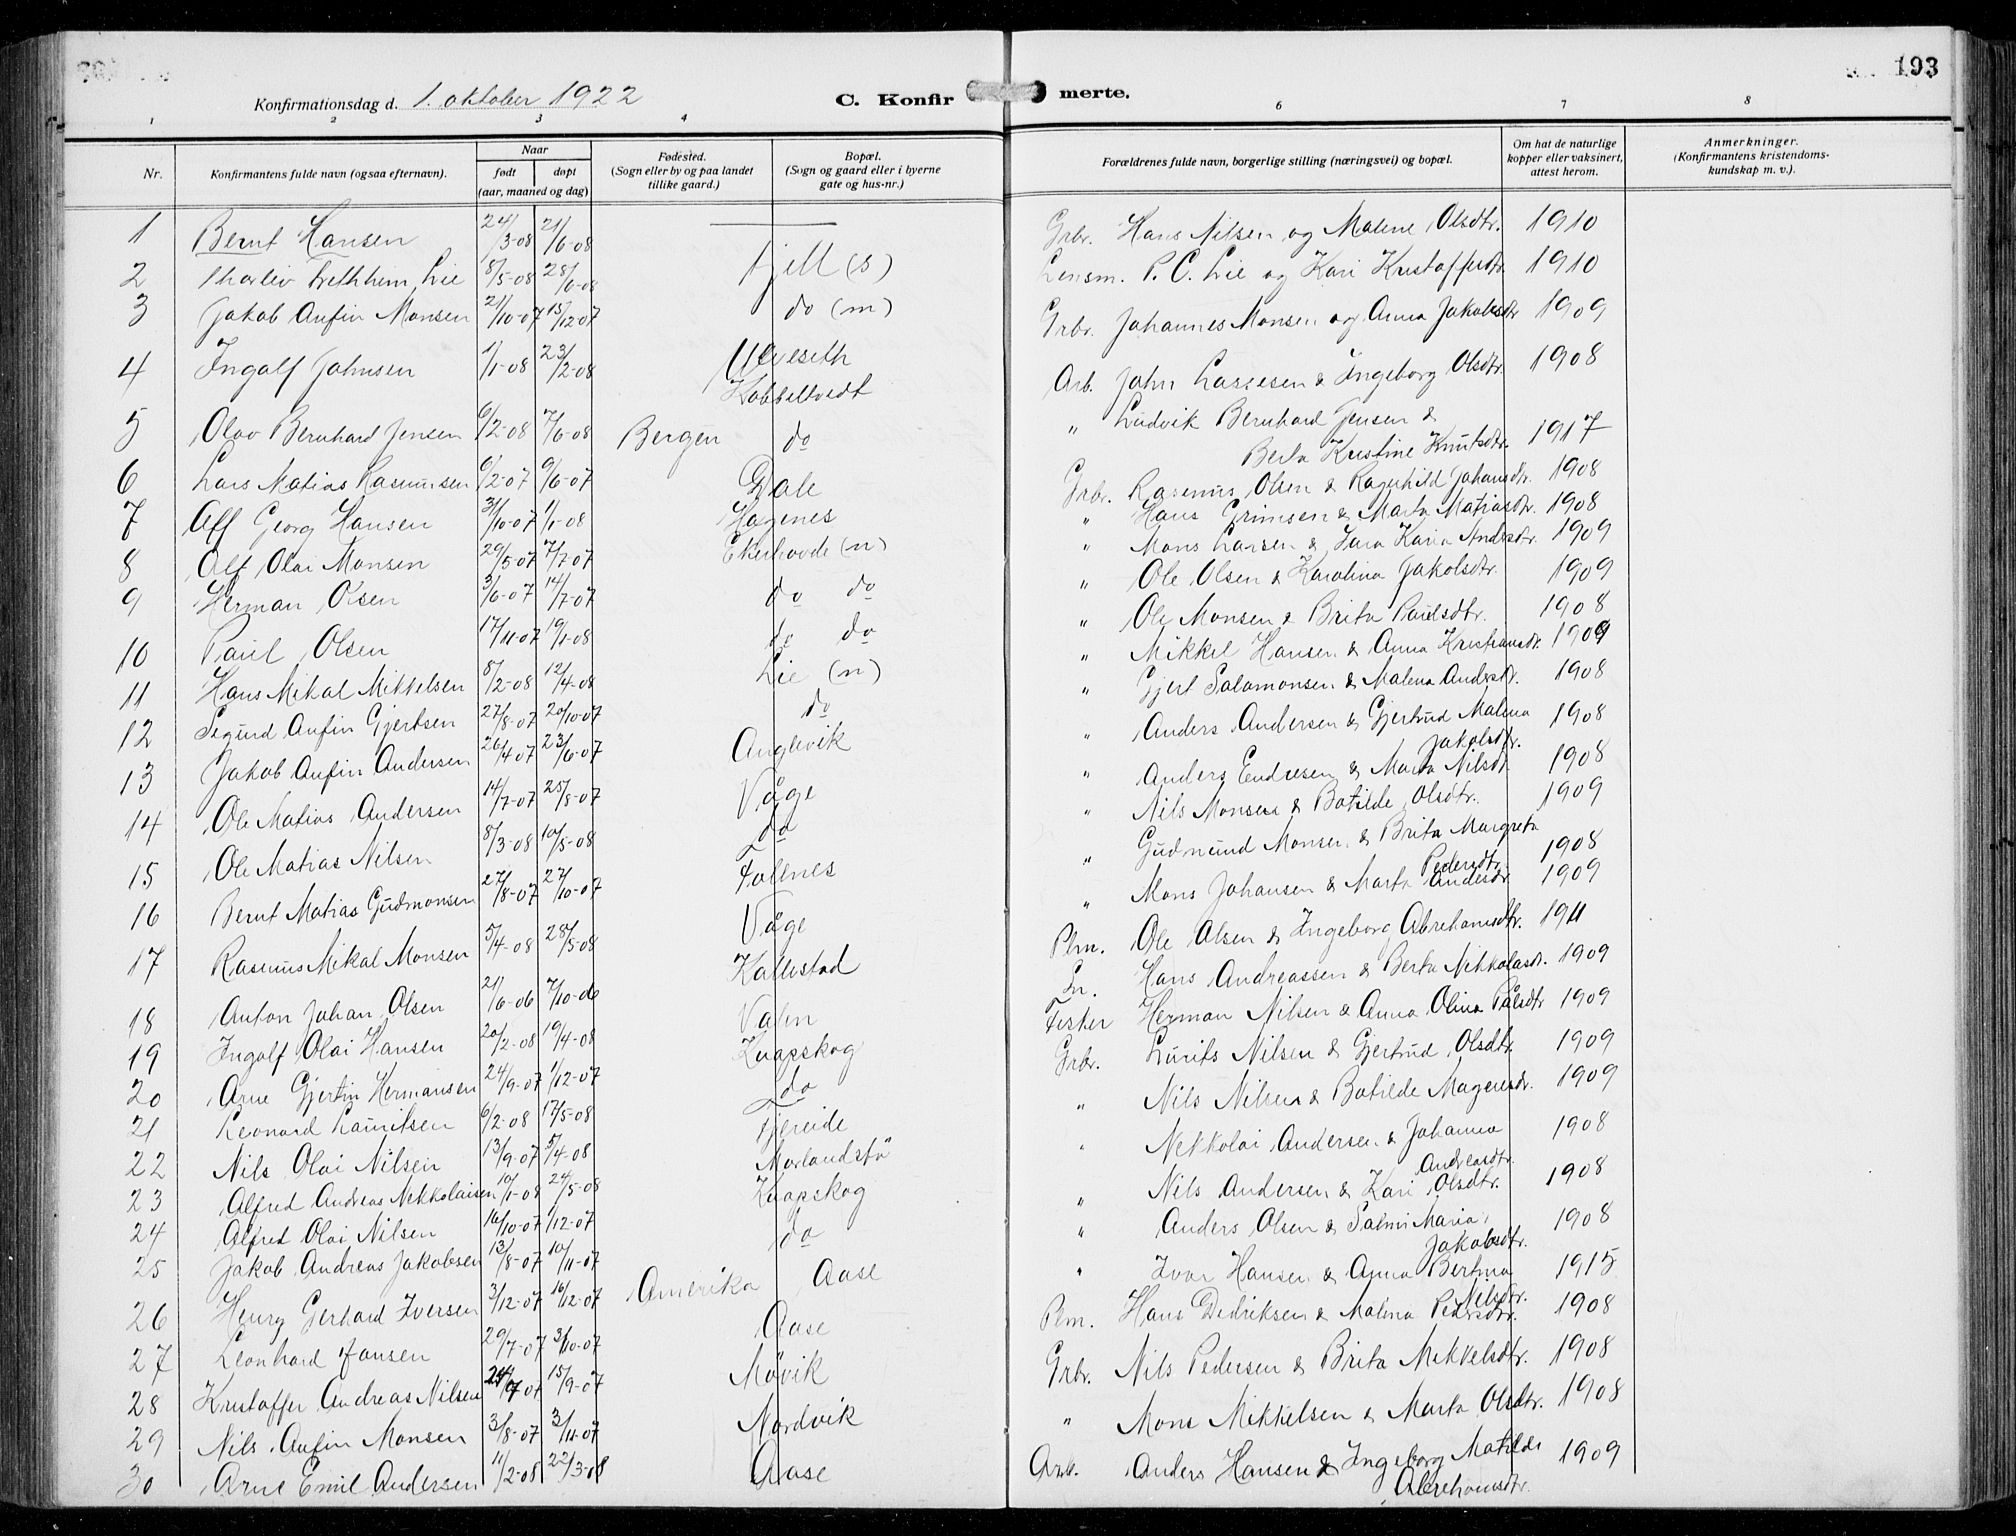 193
Konfirmationsdag d. 1. oktober 1922 C. Konfirmerte.
1 2 3 4 6 7 8
Nr. Konfirmantens fulde navn (ogsaa efternavn). Naar født døpt (aar, maaned og dag) Fødested. (Sogn eller by og paa landet tillike gaard.) Bopæl. (Sogn og gaard eller i byerne gate og hus-nr.) Forældrenes fulde navn, borgerlige stilling (næringsvei) og bopæl. Om hat de naturlige kopper eller vaksinert, attest herom. Anmerkninger. (Konfirmantens kristendomskundskap m. v.).
1 Bernt Hansen 24/3-08 21/6-08 Grbr. Hans Nilsen og Malene Olsdtr. 1910
2 Thorleiv Fretthem Lie 8/5-08 28/6-08 Fjell (s) Lensm. P. C. Lie og Kari Kristoffersdtr. 1910
3 Jakob Anfin Monsen 21/10-07 15/12-07 do (m) Grbr. Johannes Monsen og Anna Jakobsdtr 1909
4 Ingolf Johnsen 1/1-08 23/2-08 Ulveseth Kobbeltvedt Arb. John Lassesen & Ingeborg Olsdtr. 1908
5 Olav Bernhard Jensen 6/2-08 7/6-08 Bergen do " Ludvik Bernhard Jensen & Berta Kristine Knutsdtr. 1917
6 Lars Matias Rasmusen 6/2-07 9/6-07 Dale Grbr. Rasmus Olsen & Ragnhild Johansdtr. 1908
7 Alf Georg Hansen 31/10-07 1/1-08 Hagenes " Hans Grimsen & Marta Matiasdtr. 1908
8 Alf Olai Monsen 29/5-07 7/7-07 Ekerhovde (n) " Mons Larsen & Sara Karia Andersdtr. 1909
9 Herman Olsen 3/6-07 14/7-07 do do " Ole Olsen & Karolina Jakobsdtr. 1909
10 Paul Olsen 17/11-07 19/1-08 do do " Ole Monsen & Brita Paulsdtr. 1908
11 Hans Mikal Mikkelsen 8/2-08 12/4-08 Lie (n) " Mikkel Hansen & Anna Kristiansdtr. 1909
12 Sigurd Anfin Gjertsen 27/8-07 20/10-07 do " Gjert Salamonsen & Malena Andersdtr. 1908
13 Jakob Anfin Andersen 26/4-07 23/6-07 Anglevik " Anders Andersen & Gjertrud Malena Jakobsdtr. 1908
14 Ole Matias Andersen 14/7-07 25/8-07 Våge " Anders Endresen & Marta Nilsdtr. 1908
15 Ole Matias Nilsen 8/3-08 10/5-08 do " Nils Monsen & Botilde Olsdtr. 1909
16 Bernt Matias Gudmonsen 27/8-07 27/10-07 Follnes " Gudmund Monsen & Brita Margreta Pedersdtr. 1908
17 Rasmus Mikal Monsen 5/4-08 28/5-08 Våge " Mons Johansen & Marta Andersdtr. 1909
18 Anton Johan Olsen 21/6-06 7/10-06 Kallestad Plm. Ole Olsen & Ingeborg Abrahamsdtr. 1911
19 Ingolf Olai Hansen 20/2-08 19/4-08 Valen Hans Andreassen & Berta Nikkolasdtr. 1909
20 Arne Gjertin Hermansen 24/9-07 1/12-07 Knapskog Fisker Herman Nilsen & Anna Olina Pålsdtr 1909
21 Leonard Lauritsen 6/2-08 17/5-08 do Grbr. Laurits Nilsen & Gjertrud Olsdtr. 1909
22 Nils Olai Nilsen 13/9-07 5/4-08 Fjereide " Nils Nilsen & Botilde Magnesdtr. 1909
23 Alfred Andreas Nikkolaisen 10/1-08 24/5-08 Morlandstø " Nikkolai Andersen & Johanna Andreasdtr. 1908
24 Alfred Olai Nilsen 16/10-07 1/12-07 Knapskog " Nils Andersen & Kari Olsdtr. 1908
25 Jakob Andreas Jakobsen 13/8-07 10/11-07 do " Anders Olsen & Salmi Maria Jakobsdtr. 1908
26 Henry Gerhard Iversen 3/12-07 16/12-07 Amerika Aase " Ivar Hansen & Anna Bertina Nilsdtr. 1915
27 Leonhard Hansen 29/7-07 3/10-07 Aase Plm. Hans Didriksen & Malena Pedersdtr. 1908
28 Kristoffer Andreas Nilsen 15/9-07 Møvik Grbr. Nils Pedersen & Brita Mikkelsdtr. 1908
29 Nils Anfin Monsen 3/8-07 3/11-07 Nordvik " Mons Mikkelsen & Marta Olsdtr. 1908
30 Arne Emil Andersen 11/2-08 22/3-08 Aase Arb. Anders Hansen & Ingeborg Matilde Abrehamsdtr. 1909